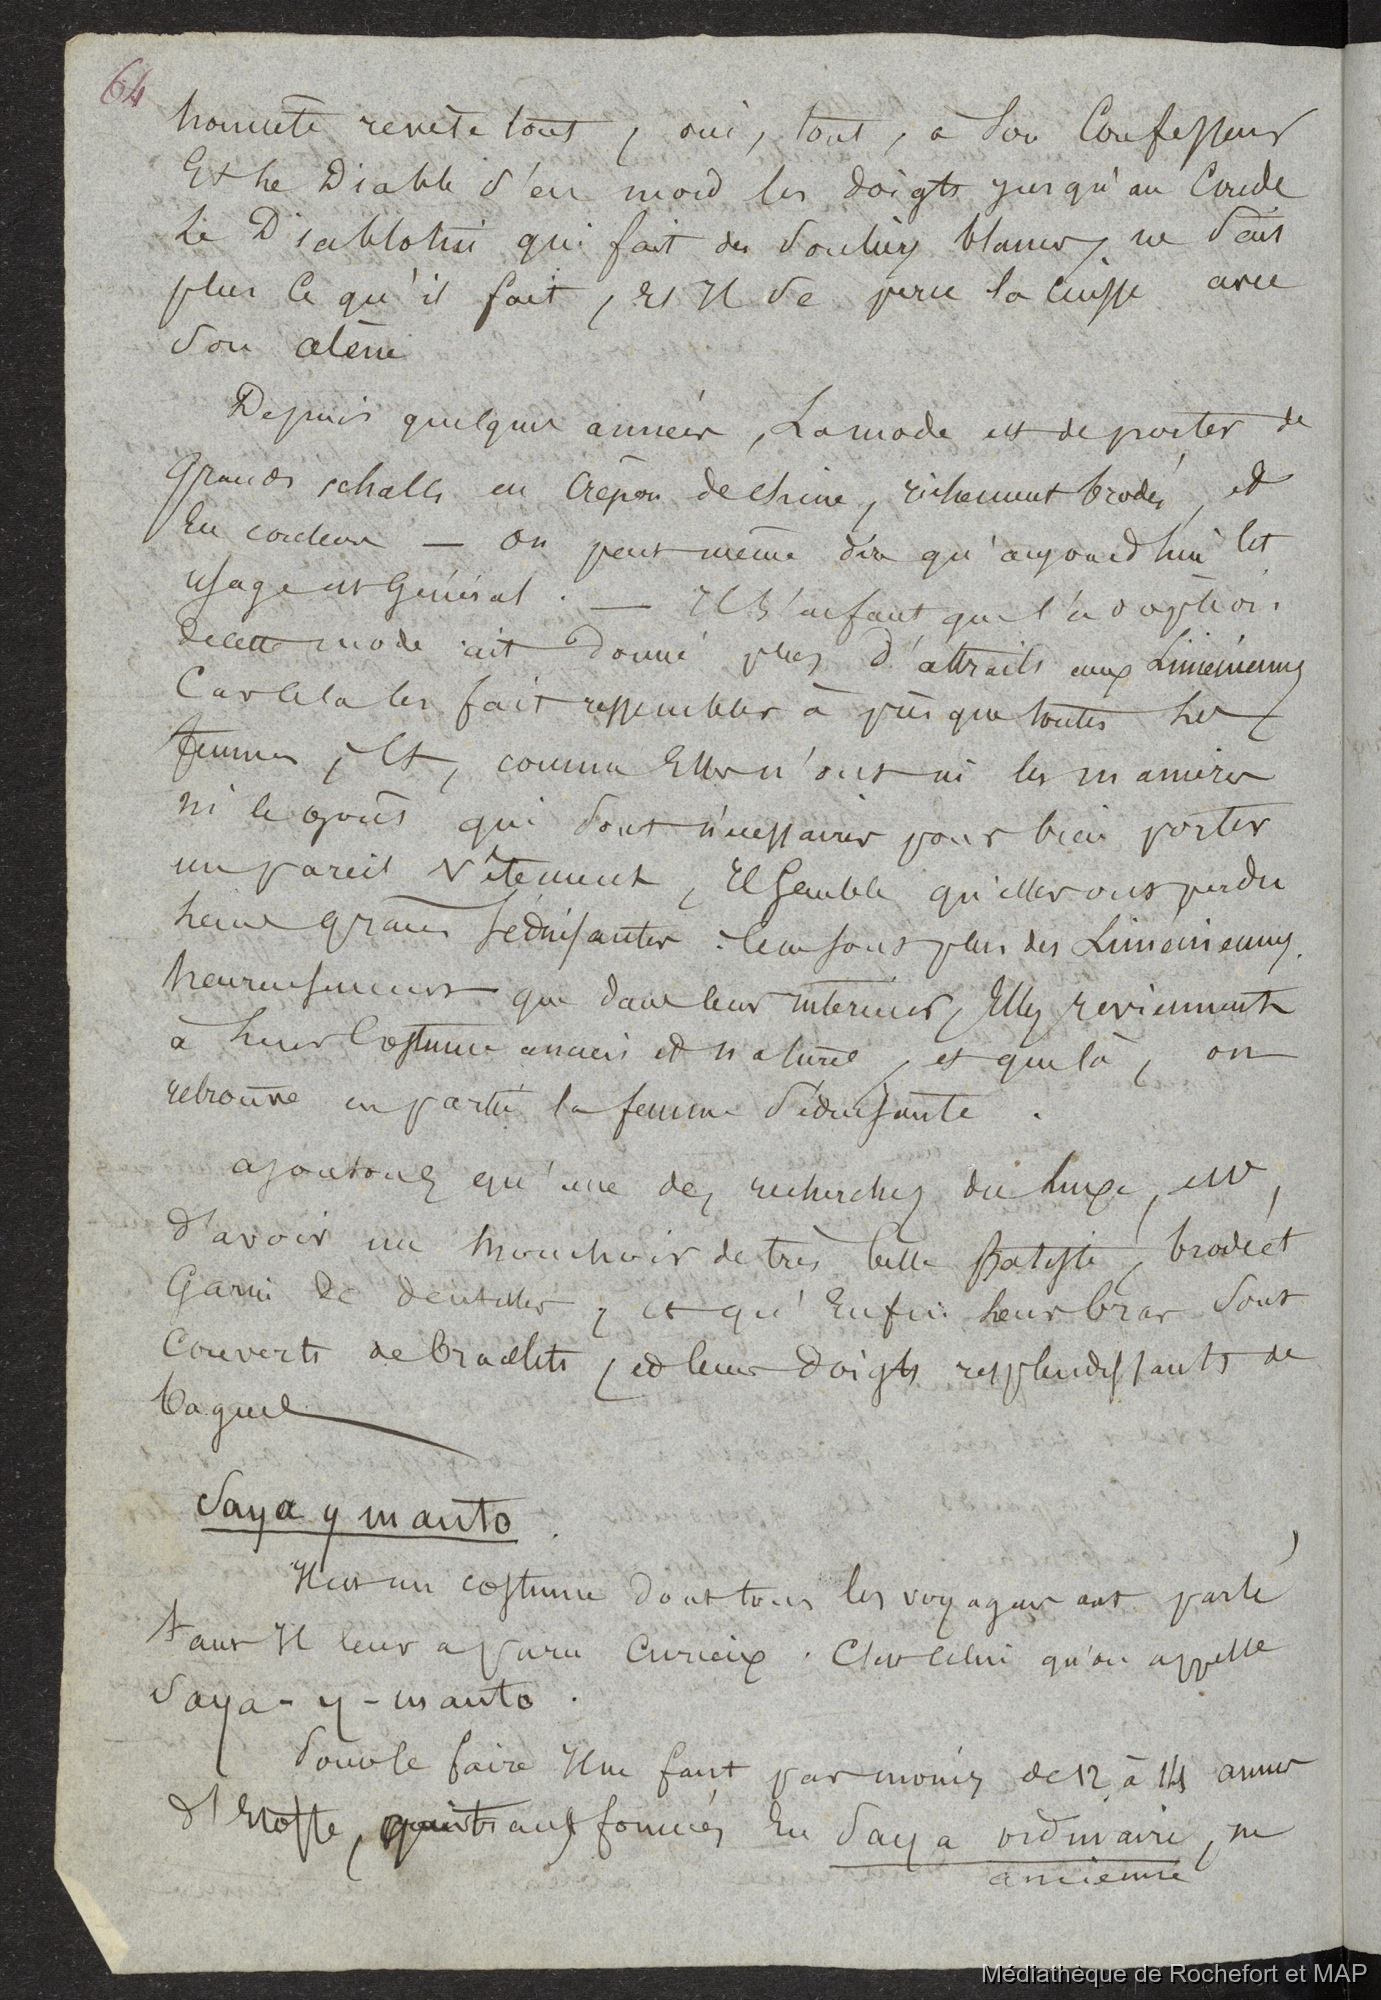 64
honnête revèle tout, oui, tout, à Son Confesseur
Et Le Diable S'en mord les doigts jusqu'au Coude
Le Diablotin qui fait des Souliers blancs, ne Sait
plus Ce qu'il fait, et Il Se perce la Cuisse avec
Son alène
Depuis quelques années, La mode est de porter de
Grands schalls en Crêpon de Chine, richement brodés, et
En couleur — on peut même dire qu'aujourd'hui Cet
usage est Général. — Il S'en faut que l'adoption
de cette mode ait donné plus d'attraits aux Liméniennes
Car Cela les fait ressembler à presque toutes Les
femmes, Et, comme Elles n'ont ni les manières
ni le goût qui Sont nécessaires pour bien porter
un pareil vêtement, Il Semble qu'elles ont perdu
Leurs grâces Séduisantes : Ce ne sont plus des Liméniennes.
heureusement que dans leur intérieur, Elles reviennent
à Leur Costume ancien et naturel, et que là, on
retrouve en partie la femme Séduisante.
ajoutons qu'une des recherches du Luxe, est,
d'avoir un Mouchoir de très belle Batiste, brodé et
Garni de dentelles, et qu'Enfin Leurs bras Sont
Couverts de bracelets, et leurs Doigts resplendissants de
bagues
Saya y manto.
Il est un costume dont tous les voyageurs ont parlé,
tant Il leur a paru Curieux. C'est Celui qu'on appelle
Saya-y-manto.
Pour le faire Il ne faut pas moins de 12 à 14 aunes
d'Etoffe, qui transformées En Saya ordinaire, ne
ancienne
Médiathèque de Rochefort et MAP